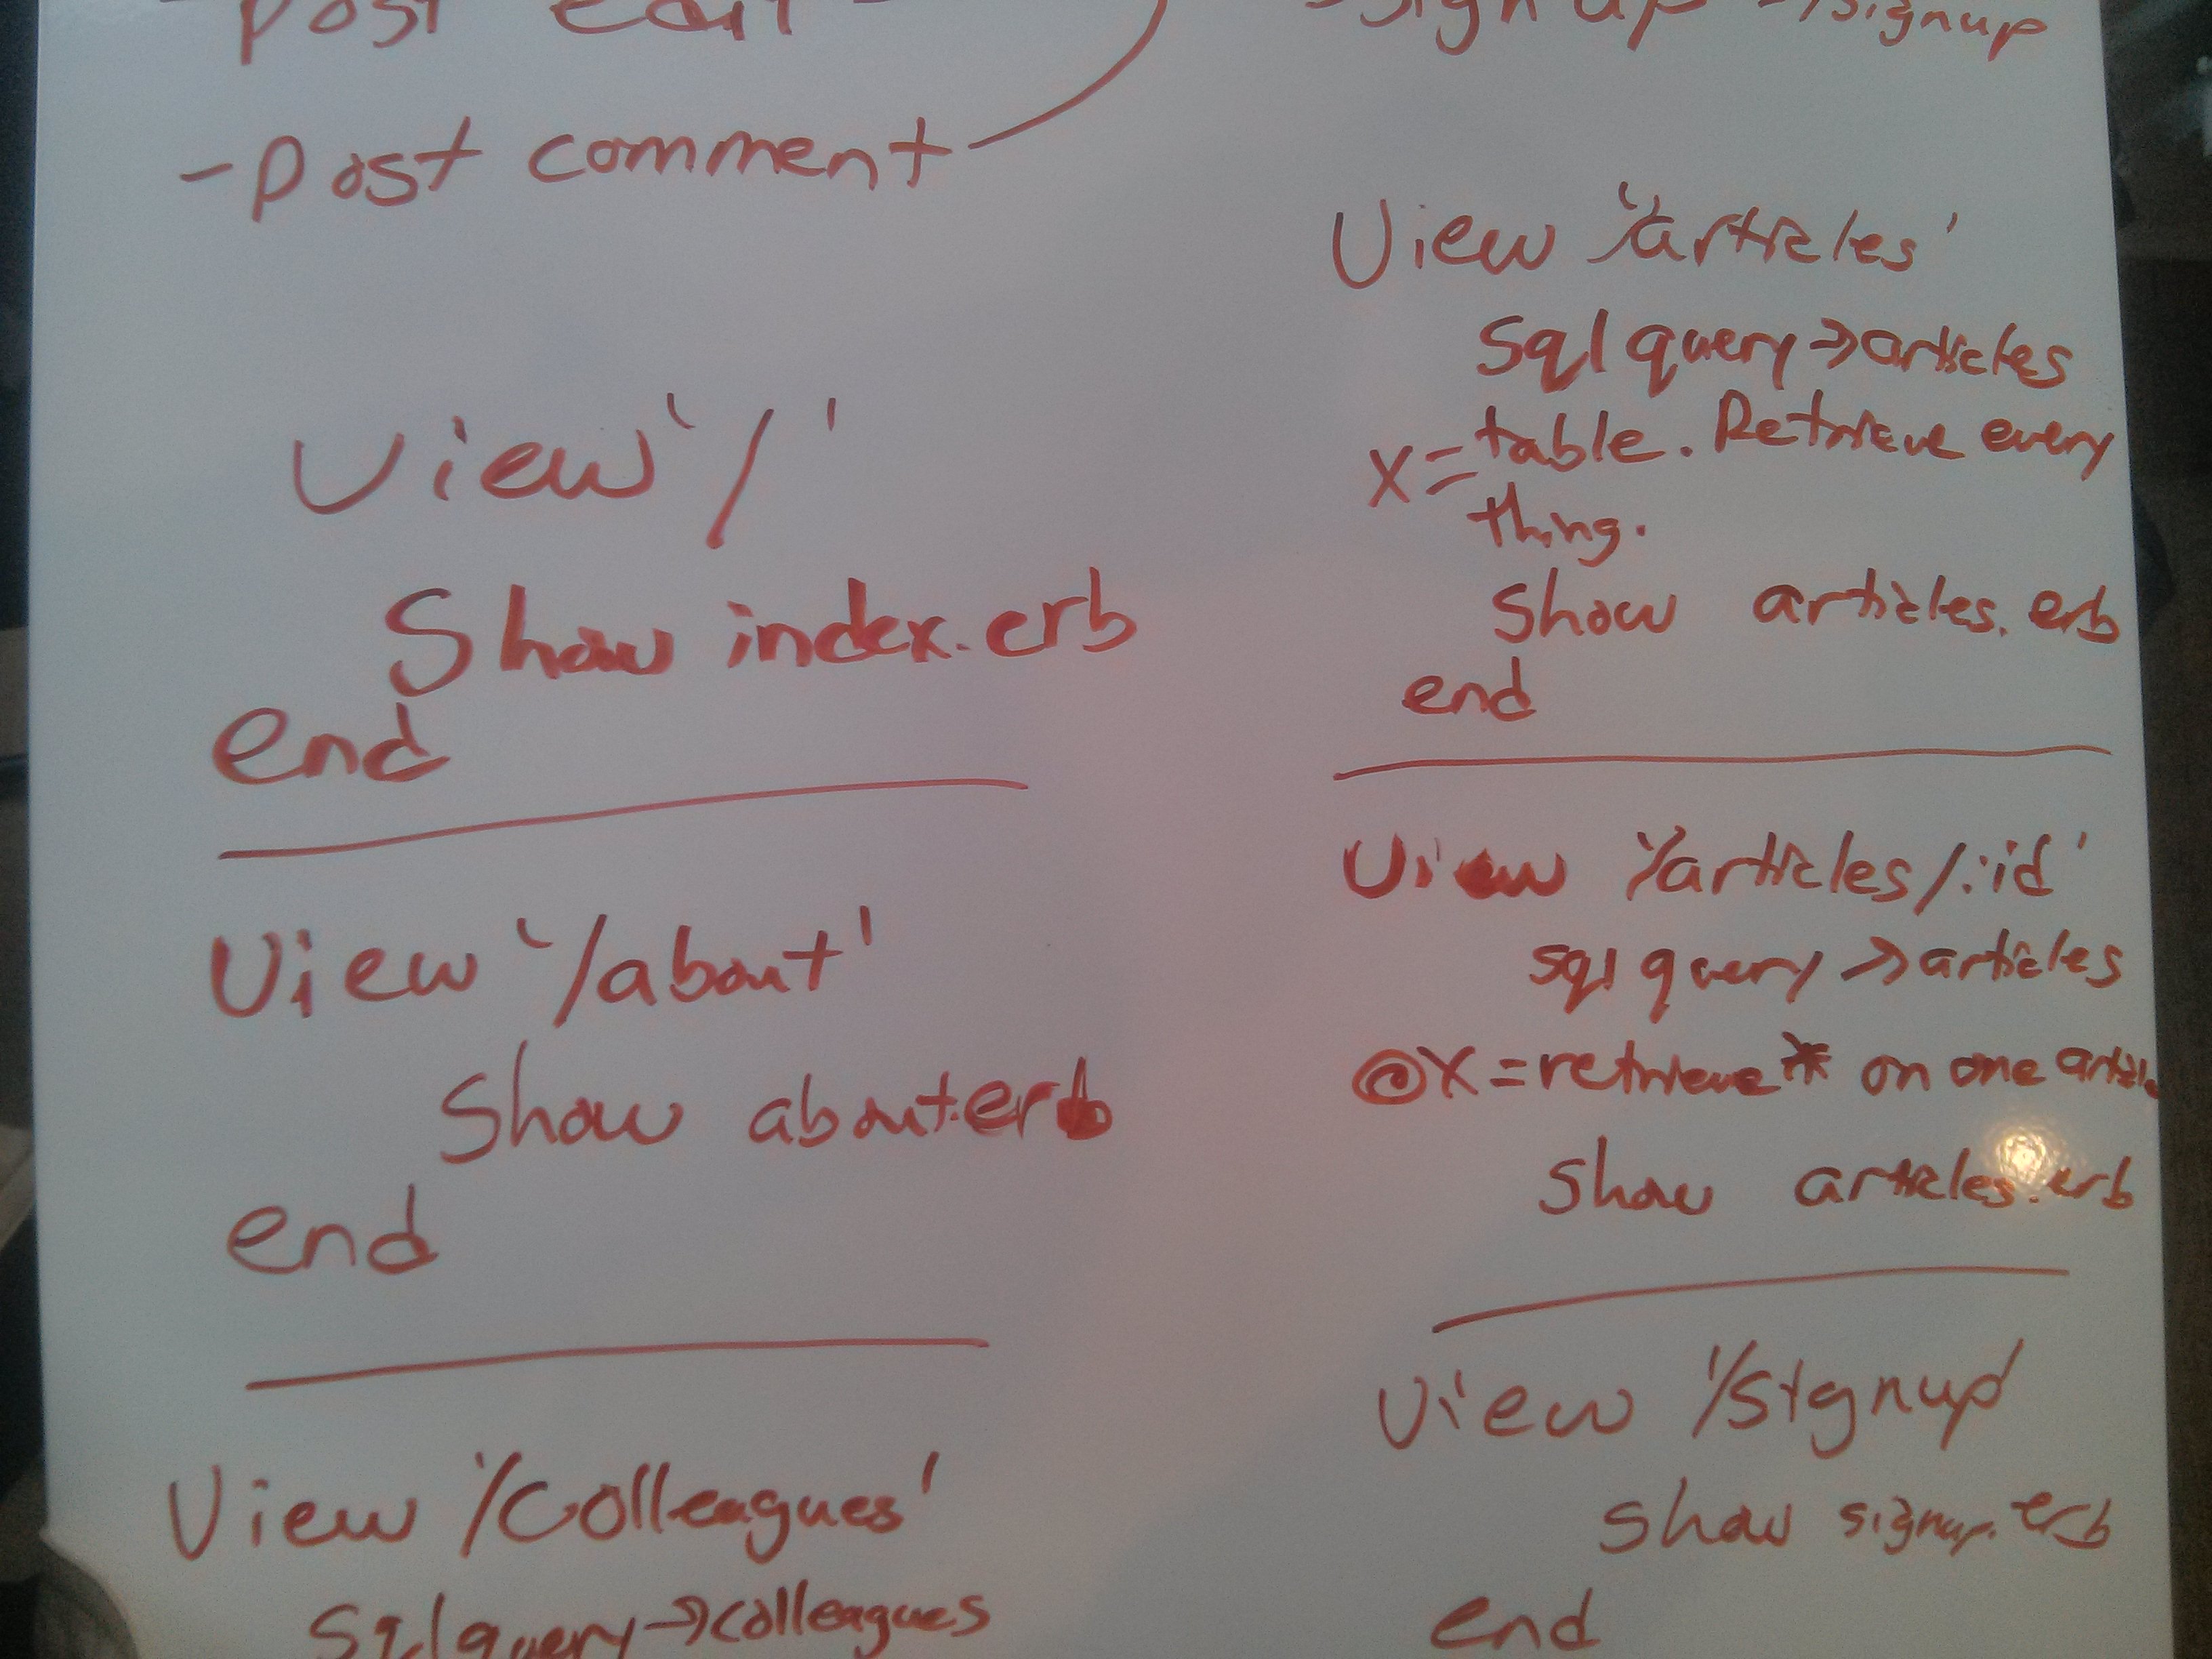 - post edit -
- post comment
View '/'
Show index.erb
end
View '/about'
Show about.erb
end
View '/Colleagues'
Sql query → colleagues
- sign up - /signup
View '/articles'
Sql query → articles
x = table. Retrieve every
thing.
Show articles.erb
end
View '/articles/:id'
sql query → articles
@x = retrieve * on one article
Show articles.erb
View '/signup'
show signup.erb
end